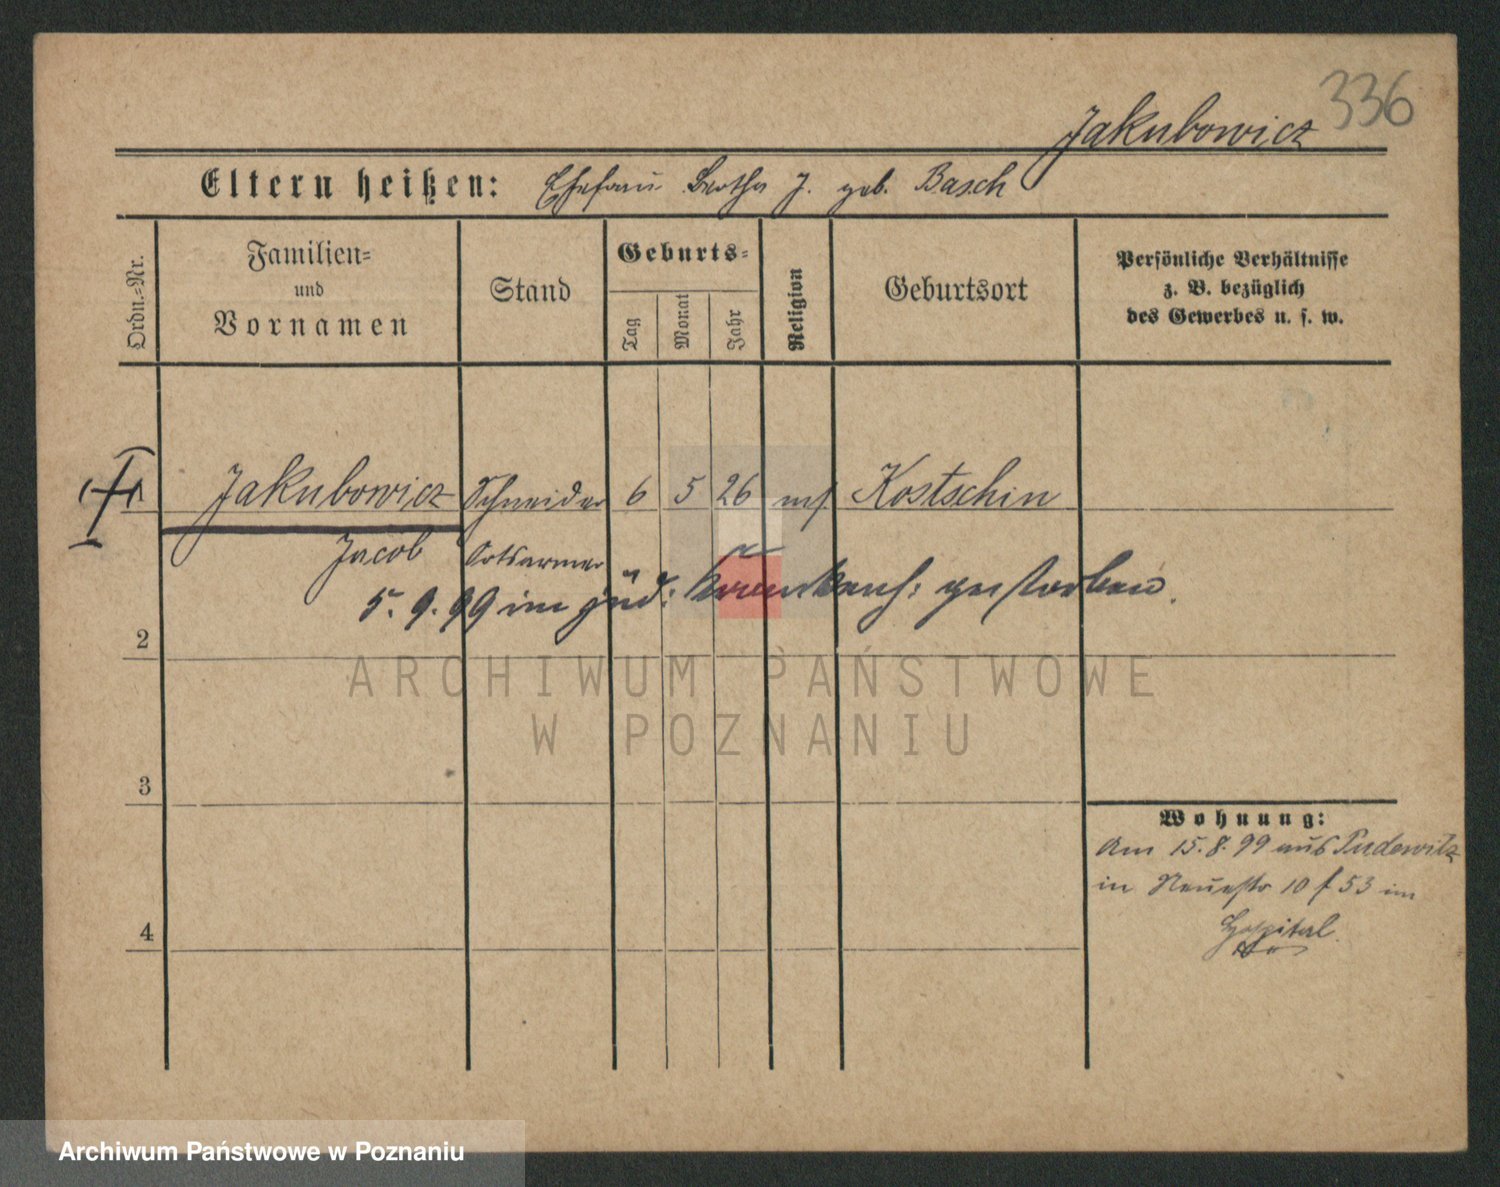 336
Jakubowicz
Eltern heißen: Ehefrau Bertha J. geb. Basch
Ordn.-Nr.
Familien-
und
Vornamen
Stand
Geburts-
Tag
Monat
Jahr
Religion
Geburtsort
Persönliche Verhältnisse
z. B. bezüglich
des Gewerbes u. s. w.
1 Jakubowicz Schneider 6 5 26 mos. Kostschin
Jacob Ortsarmer
5. 9. 99 im jüd. Krankenh: gestorben.
2
ARCHIWUM PAŃSTWOWE
W POZNANIU
3
Wohnung:
Am 15. 8. 99 aus Pudewitz
in Neuestr 10 f 53 im
Hospital.
4
Archiwum Państwowe w Poznaniu